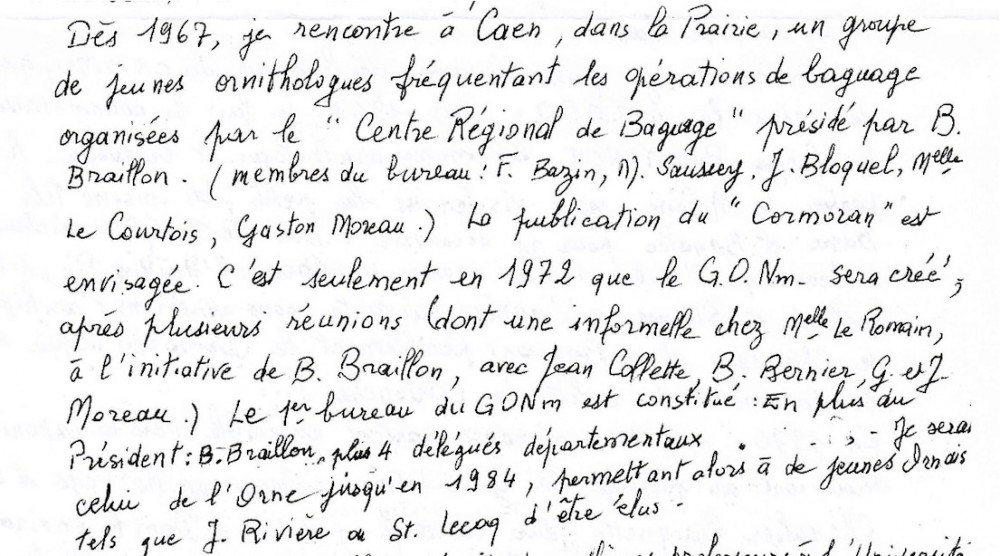 Dès 1967, je rencontre à Caen, dans la Prairie, un groupe
de jeunes ornithologues fréquentant les opérations de baguage
organisées par le "Centre Régional de Baguage" présidé par B.
Braillon. (membres du bureau : F. Bazin, N. Saussey, J. Bloquel, Melle
Le Courtois, Gaston Moreau.) La publication du "Cormoran" est
envisagée. C'est seulement en 1972 que le G.O.Nm. sera créé,
après plusieurs réunions (dont une informelle chez Melle Le Romain,
à l'initiative de B. Braillon, avec Jean Collette, B. Bernier, G. et J.
Moreau.) Le 1er bureau du GONm est constitué : En plus du
Président : B. Braillon, plus 4 délégués départementaux ; - Je serai
celui de l'Orne jusqu'en 1984, permettant alors à de jeunes Ornais
tels que J. Rivière ou St. Lecoq d'être élus.
professeurs d'Université